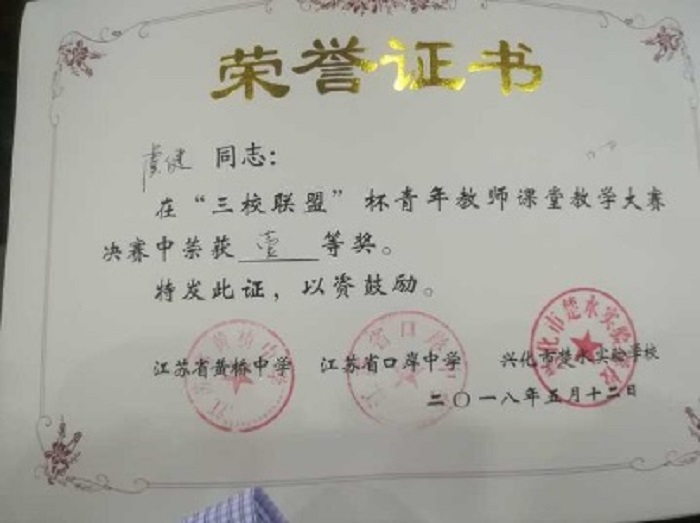 荣誉证书
虞健 同志：
在“三校联盟”杯青年教师课堂教学大赛
决赛中荣获 壹 等奖。
特发此证，以资鼓励。
江苏省黄桥中学 江苏省口岸中学 兴化市楚水实验学校
二〇一八年五月十二日